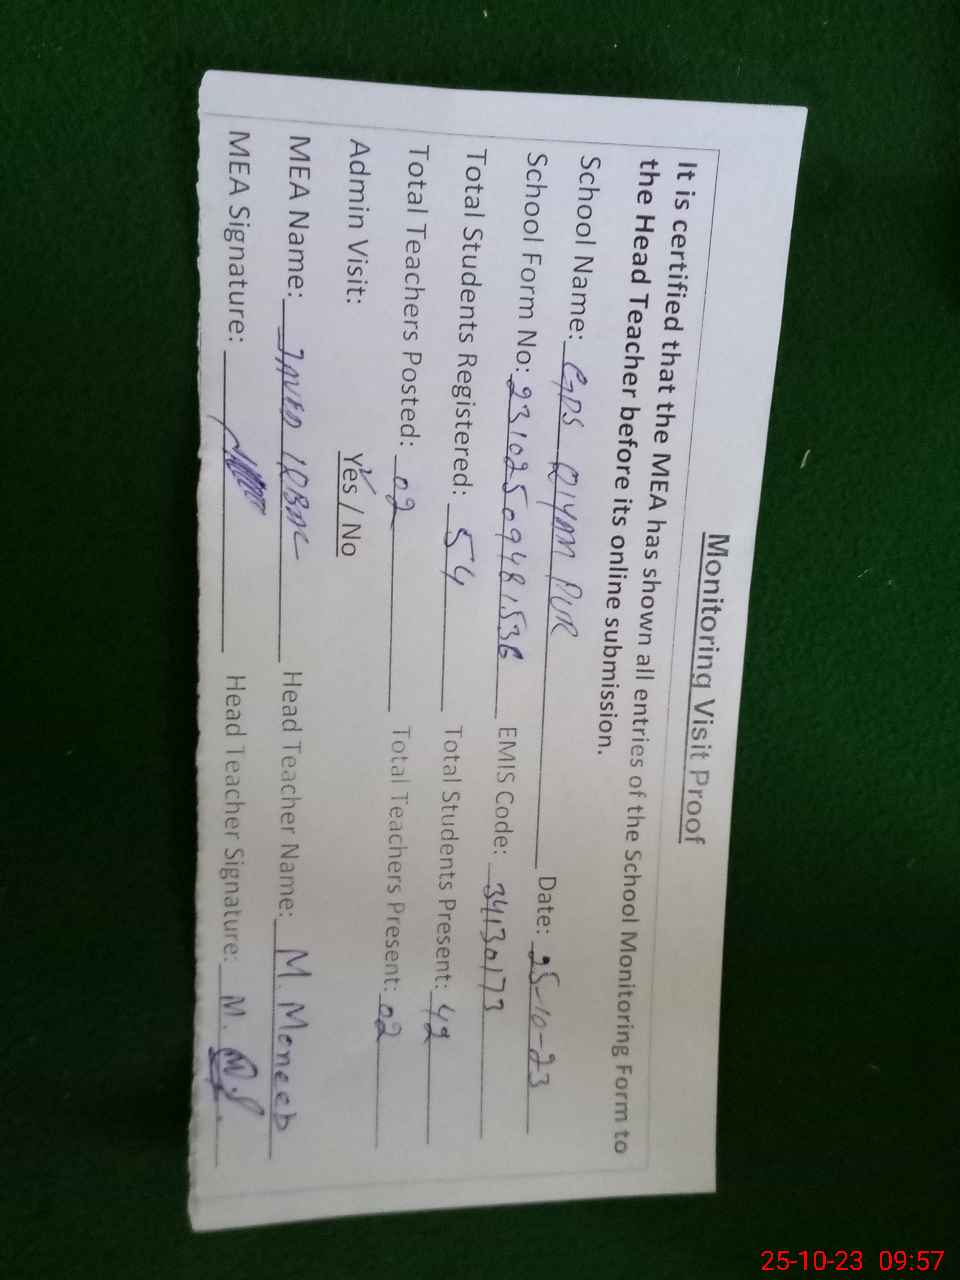 Monitoring Visit Proof
It is certified that the MEA has shown all entries of the School Monitoring Form to
the Head Teacher before its online submission.
School Name: GPS QIYAM PUR Date: 25-10-23
School Form No: 23102509481536 EMIS Code: 34130173
Total Students Registered: 54 Total Students Present: 42
Total Teachers Posted: 02 Total Teachers Present: 02
Admin Visit: Yes / No
MEA Name: JAVED IQBAL Head Teacher Name: M. Moneeb
MEA Signature: Head Teacher Signature: M.
25-10-23 09:57